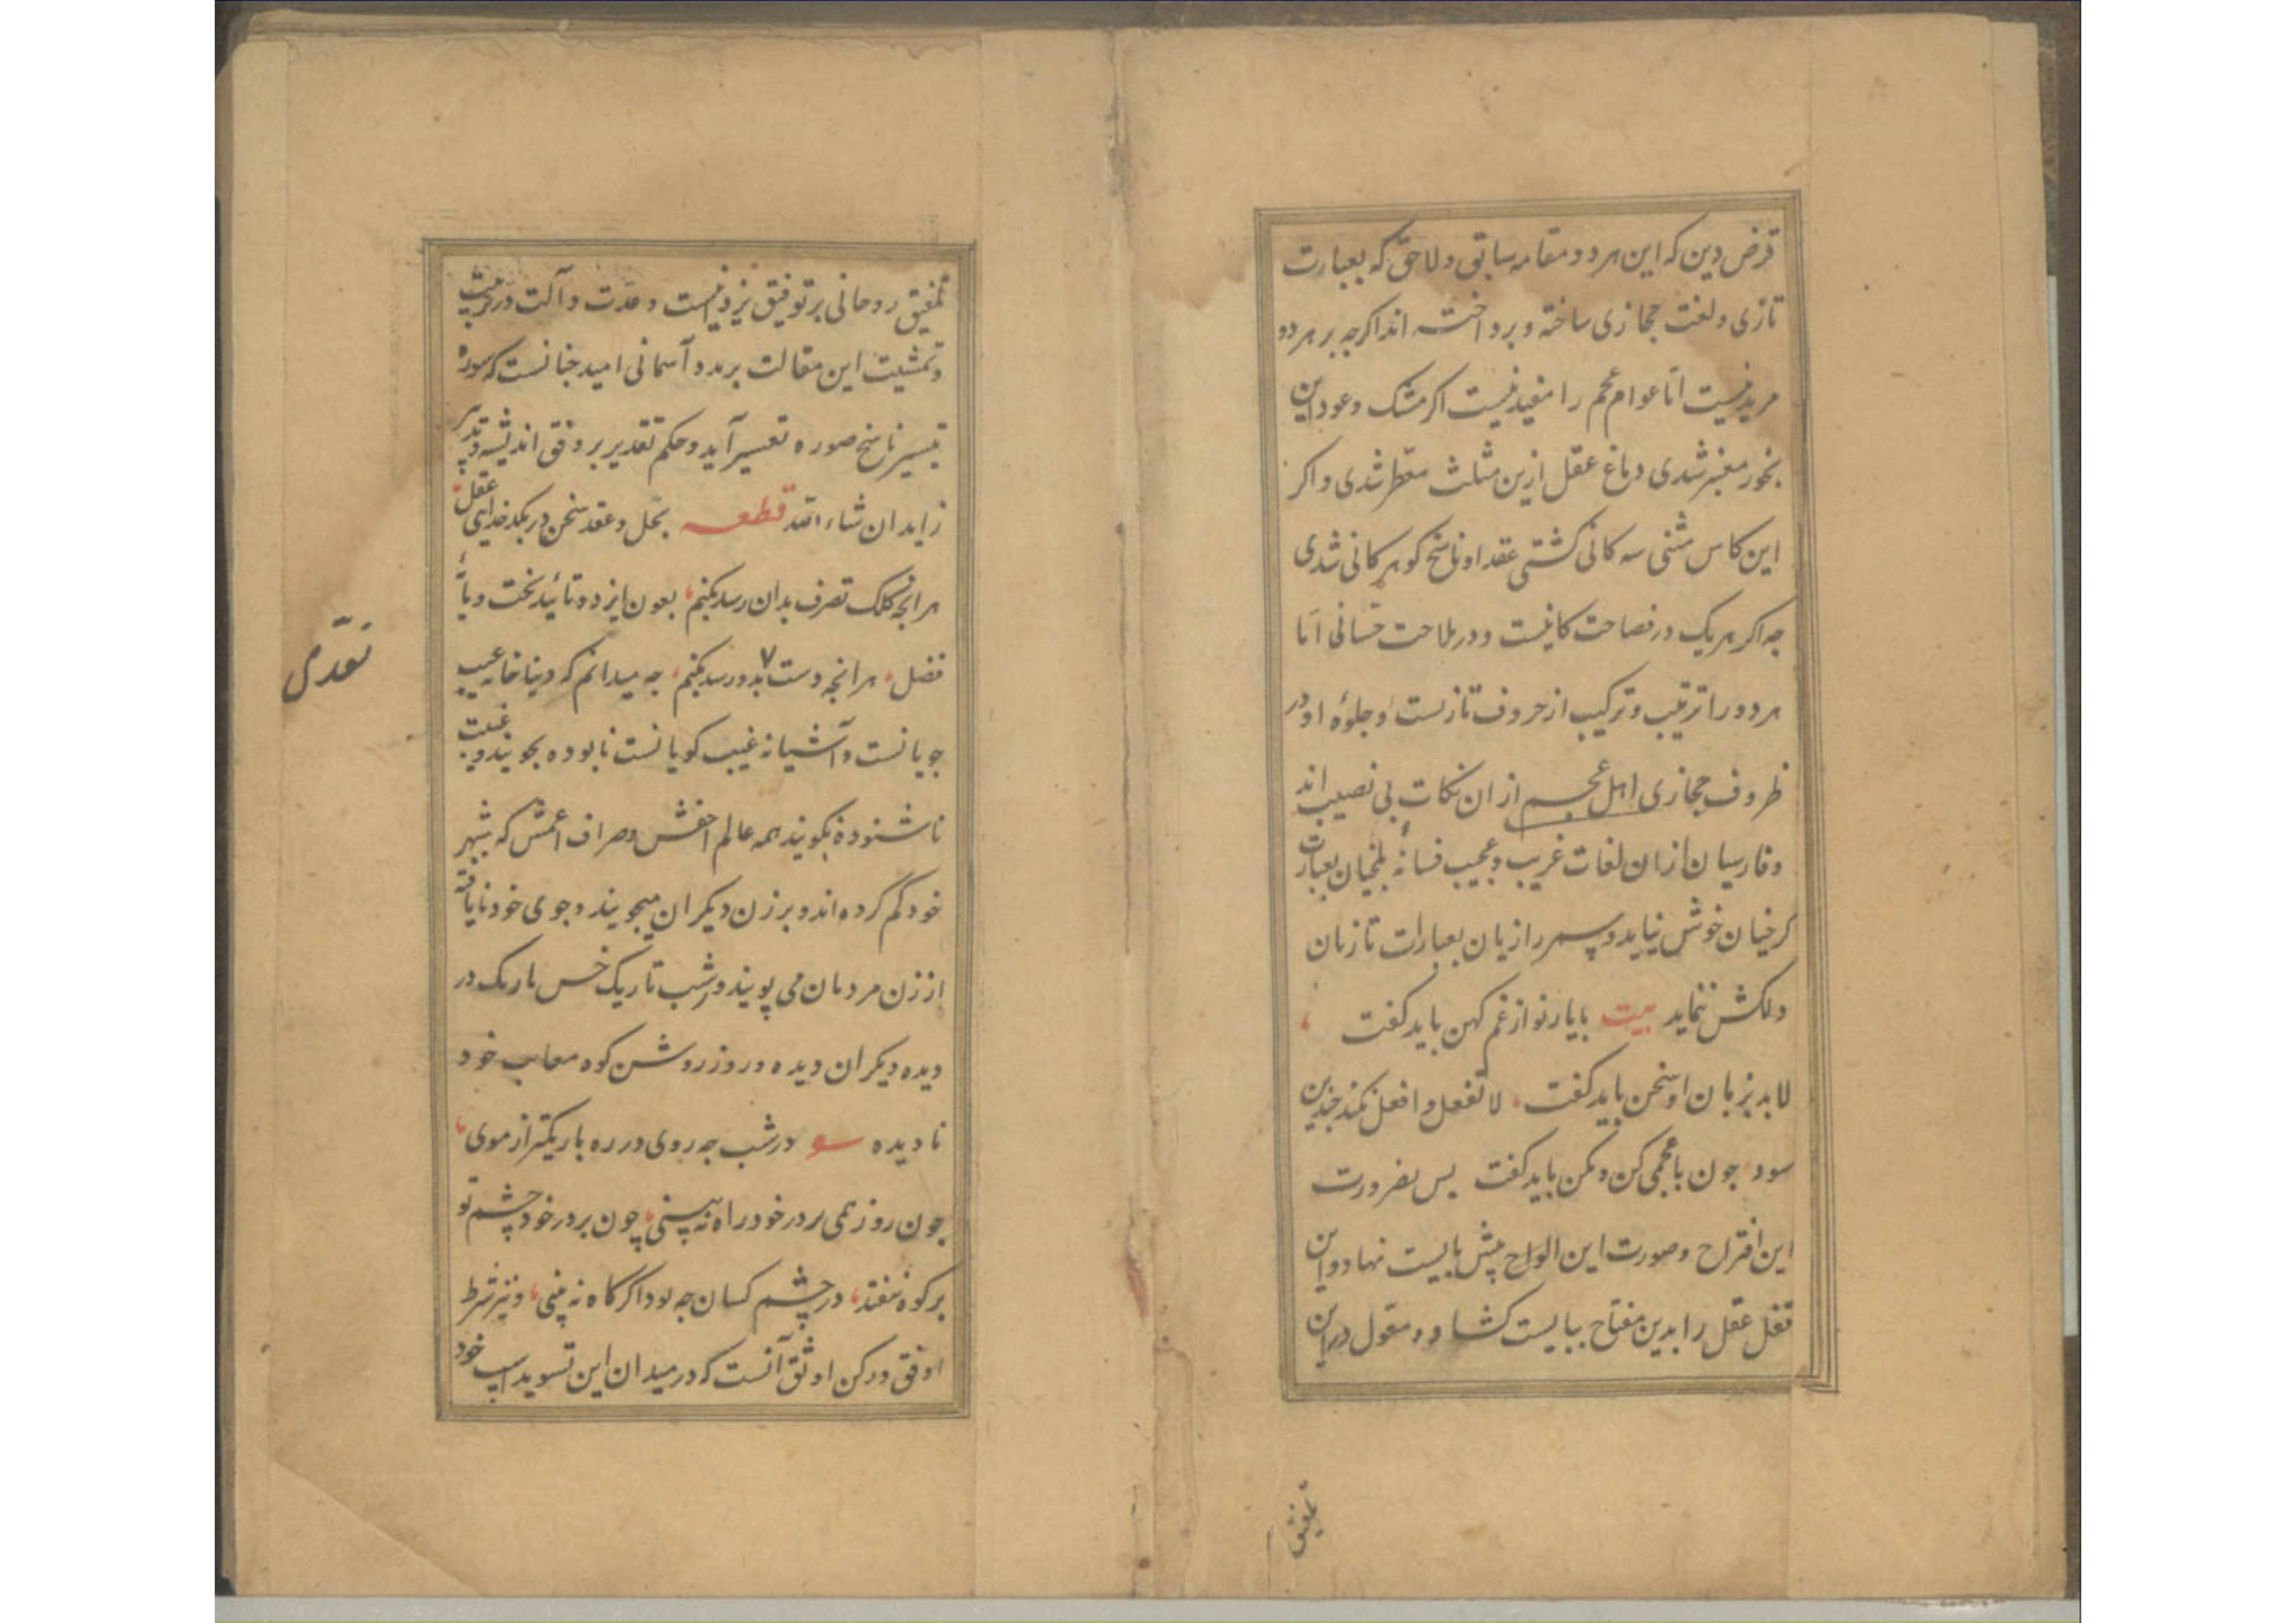 قرض دین که این هر دو مقامه سابق و لاحق که بعبارت
تازی و لغت حجازی ساخته و پرداخته اند اکرچه بر هر دو
مزید نیست اما عوام عجم را مفید نیست اکر مشک و عود این
بخور معنبر شدی دماغ عقل ازین مثلث معطر شدی و اکر
این کاس مثنی سه کانی کشتی عقد او ناسخ کوهر کانی شدی
چه اکر هر یک در فصاحت کانیست و در ملاحت حسانی اما
هر دو را ترتیب و ترکیب از حروف تازیست و جلوهٔ او در
ظروف حجازی اهل عجم از ان نکات بی نصیب اند
و فارسیان ازان لغات غریب و عجیب فسانهٔ بلخیان بعبارت
کرخیان خوش نیاید و سمر رازیان بعبارات تازیان
دلکش ننماید بیت با یار نو از غم کهن باید کفت
لابد بزبان او سخن باید کفت لا تفعل و افعل نکند چندین
سود چون با عجمی کن و مکن باید کفت پس بضرورت
این اقتراح و صورت این الواح پیش بایست نهاد و این
قفل عقل را بدین مفتاح ببایست کشاد و معول درین
تلفیق
تلفیق روحانی بر توفیق یزدانیست و عدت و آلت در ترتیب
و تمشیت این مقالت بر مدد آسمانی امید چنانست که سوره
تیسیر ناسخ صوره تعسیر آید و حکم تقدیر بر وفق اندیشه و تدبیر
زاید ان شاء الله قطعه بحل و عقد سخن در بکدخدایی عقل
هر انچه کلک تصرف بدان رسد بکنم بعون ایزد و تائید بخت و یاری
فضل هر انچه دست بدو در رسد بکنم چه میدانم که دنیا خانه عیب
جویانست و آشیانه غیب کویانست نابوده بجویند و غیبت
ناشنوده بکویند همه عالم اخفش و صراف اعمش که شهر
خود کم کرده اند و برزن دیکران میجویند و جوی خود نایافته
ارزن مردمان می پویند در شب تاریک خس باریک در
دیده دیکران دیده و در روز روشن کوه معایب خود
نادیده در شب چه روی در ره باریکتر از موی
چون روز همی بر در خود راه نه بینی چون بر در خود چشم تو
بر کوه نیفتد در چشم کسان چه بود اکر کاه نه بینی و نیز شرط
اوفق و رکن اوثق آنست که در میدان این تسوید اسب خود
تعدی